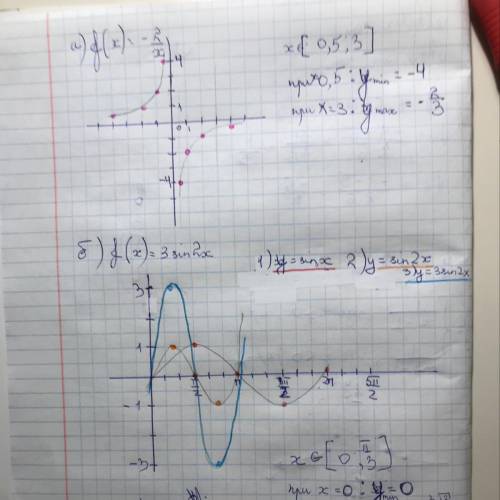 а) f(x) = -2/x
x ∈ [0,5; 3]
при x 0,5 : y min = -4
при x = 3 : y max = -2/3
4
1
0 1
-4
б) f(x) = 3 sin2x
1) y = sinx 2) y = sin2x
3) y = 3sin2x
3
1
π/2 π 3π/2 2π 5π/2
-1
-3
x ∈ [0; π/3]
при x = 0 : y min = 0